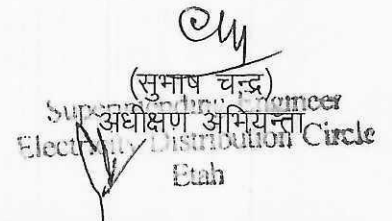 (सुभाष चन्द्र)
अधीक्षण अभियन्ता
Superintending Engineer
Electricity Distribution Circle
Etah